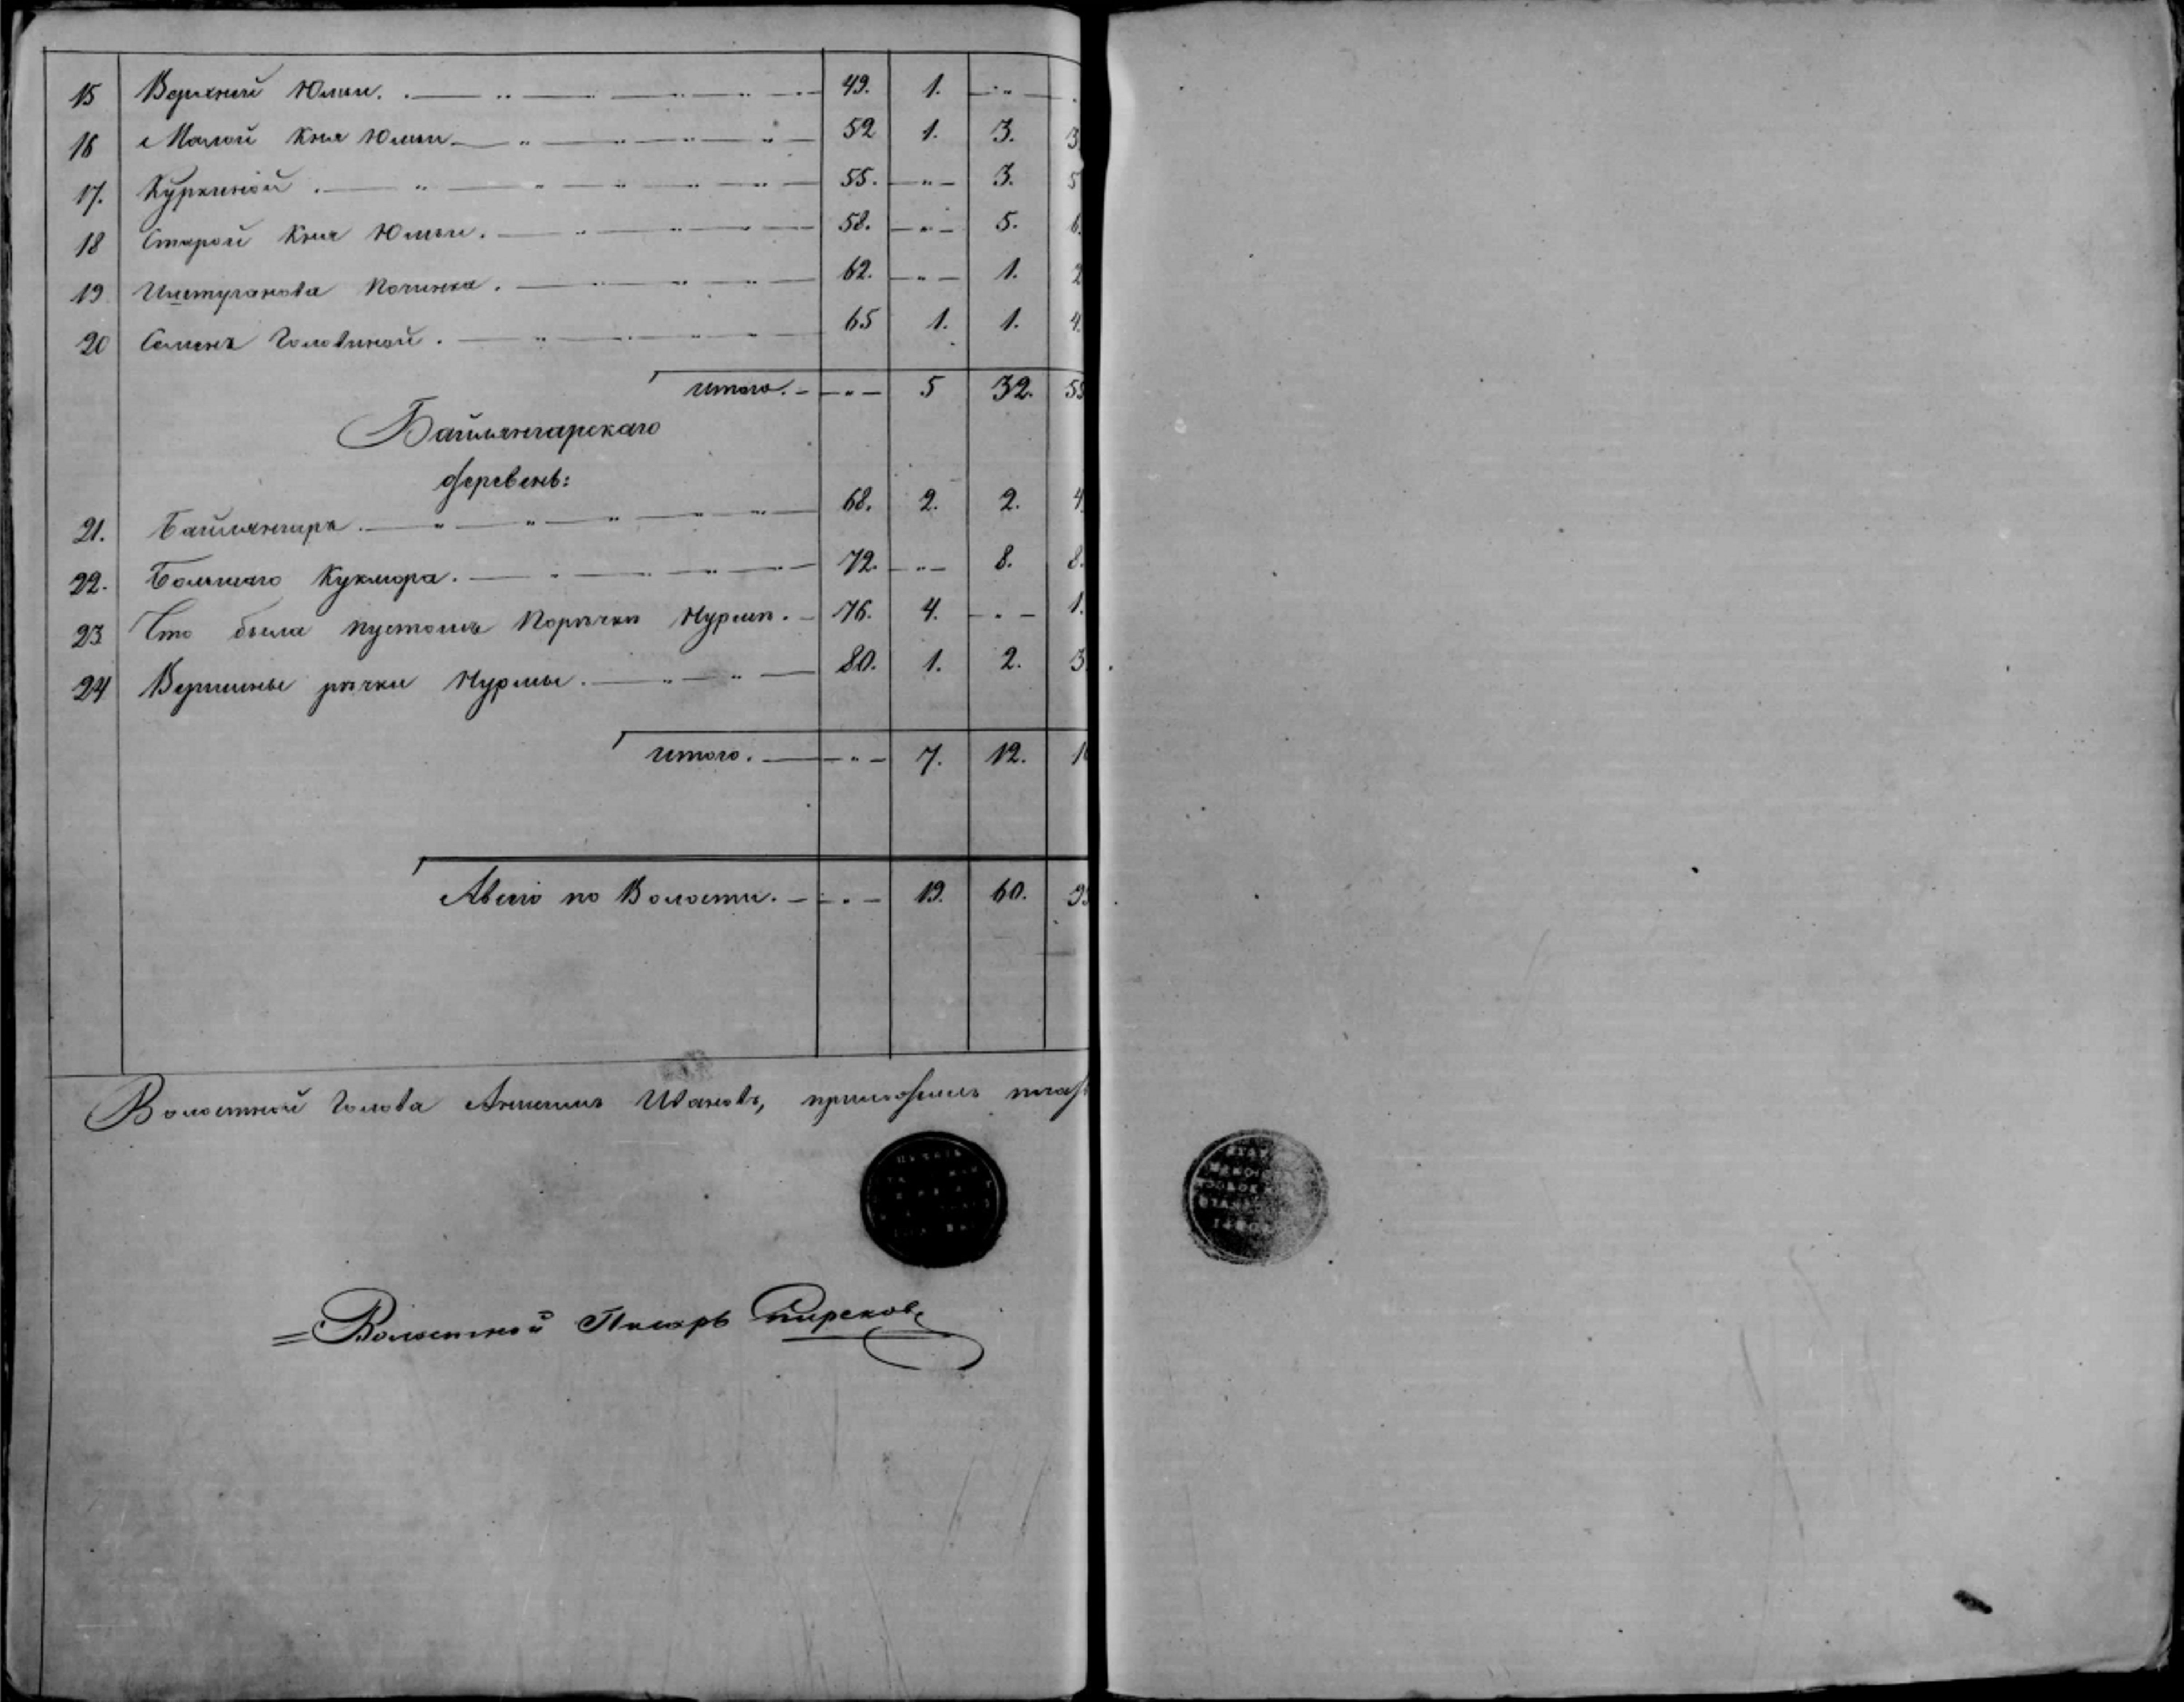 15 Верхней Юмьи. 49. 1. „
16 Малой Кня Юмьи 52 1. 3. 3
17. Куркиной. 55. „ 3. 5
18 Старой Кня Юмьи. 58. „ 5. 6.
19 Иштуганова Починка. 62. „ 1. 2
20 Семенъ Головиной. 65 1. 1. 4.
Итого. „ 5 32. 55
Байлянгарскаго
деревень:
21. Байлянгаръ. 68. 2. 2. 4
22. Большаго Кукмора. 72. „ 8. 8.
23 Что была пустошь По рѣчкѣ Нурмѣ. 76. 4. „ 1.
24 Вершины рѣчки Нурмы. 80. 1. 2. 3
Итого. „ 7. 12. 1
А всего по Волости. „ 19. 60. 9
Волостной Голова Ивановъ, приложилъ
Волостной Писарь